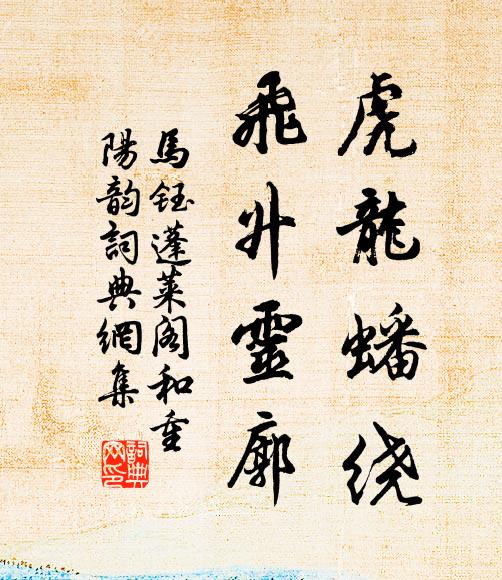 虎龍蟠绕
飛升靈廓
馬鈺蓬萊閣和重
陽韵詞典網集
詞典网印